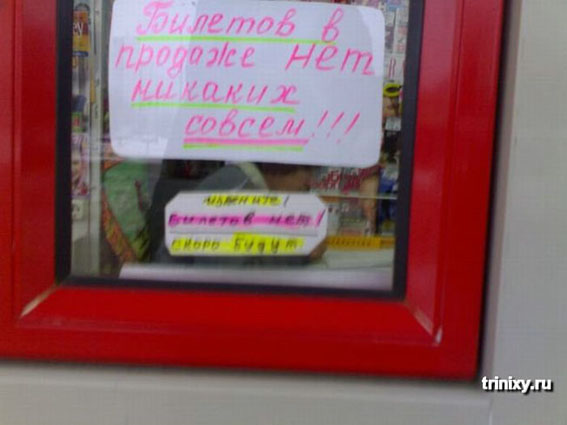 Билетов в
продаже нет
никаких
совсем!!!
извените!
Билетов нет!
скоро будут
trinixy.ru